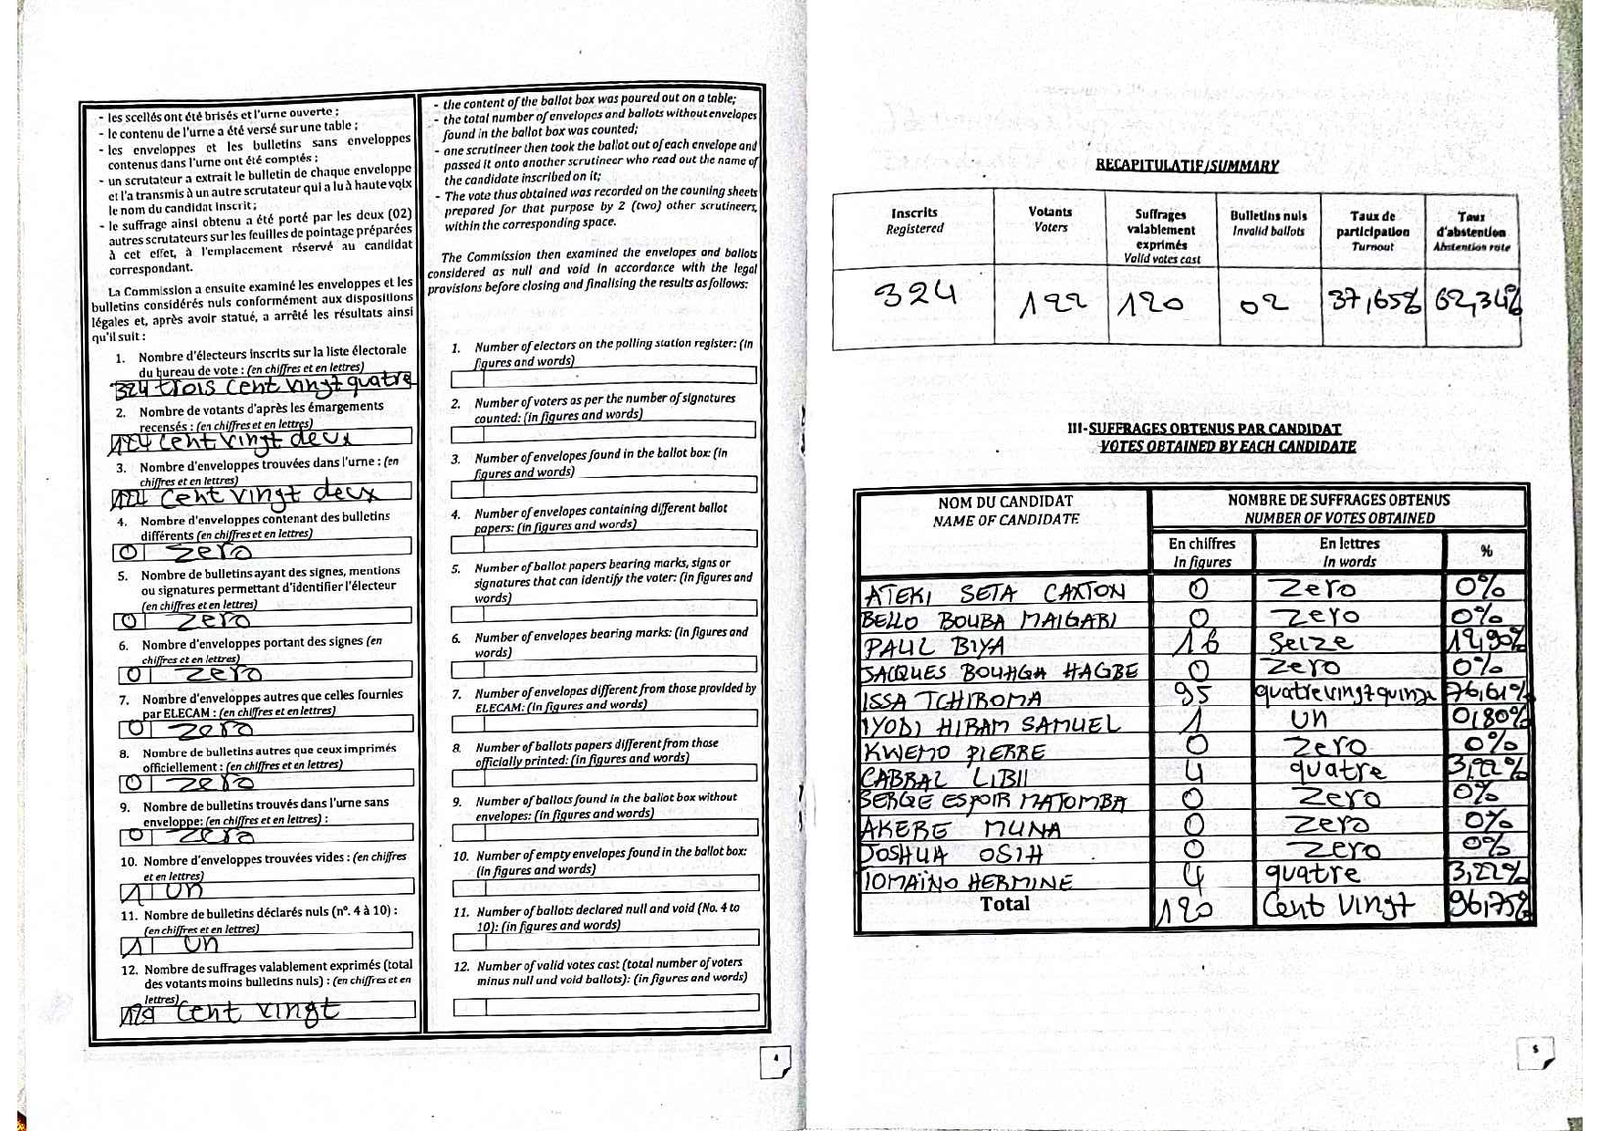 - les scellés ont été brisés et l'urne ouverte ;
- le contenu de l'urne a été versé sur une table ;
- les enveloppes et les bulletins sans enveloppes
contenus dans l'urne ont été comptés ;
- un scrutateur a extrait le bulletin de chaque enveloppe
et l'a transmis à un autre scrutateur qui a lu à haute voix
le nom du candidat inscrit ;
- le suffrage ainsi obtenu a été porté par les deux (02)
autres scrutateurs sur les feuilles de pointage préparées
à cet effet, à l'emplacement réservé au candidat
correspondant.
La Commission a ensuite examiné les enveloppes et les
bulletins considérés nuls conformément aux dispositions
légales et, après avoir statué, a arrêté les résultats ainsi
qu'il suit :
1. Nombre d'électeurs inscrits sur la liste électorale
du bureau de vote : (en chiffres et en lettres)
324 trois cent vingt quatre
2. Nombre de votants d'après les émargements
recensés : (en chiffres et en lettres)
cent vingt deux
3. Nombre d'enveloppes trouvées dans l'urne : (en
chiffres et en lettres)
cent vingt deux
4. Nombre d'enveloppes contenant des bulletins
différents (en chiffres et en lettres)
0 zero
5. Nombre de bulletins ayant des signes, mentions
ou signatures permettant d'identifier l'électeur
(en chiffres et en lettres)
0 zero
6. Nombre d'enveloppes portant des signes (en
chiffres et en lettres)
0 zero
7. Nombre d'enveloppes autres que celles fournies
par ELECAM : (en chiffres et en lettres)
0 zero
8. Nombre de bulletins autres que ceux imprimés
officiellement : (en chiffres et en lettres)
0 zero
9. Nombre de bulletins trouvés dans l'urne sans
enveloppe: (en chiffres et en lettres) :
0 zero
10. Nombre d'enveloppes trouvées vides : (en chiffres
et en lettres)
1 un
11. Nombre de bulletins déclarés nuls (n°. 4 à 10) :
(en chiffres et en lettres)
1 un
12. Nombre de suffrages valablement exprimés (total
des votants moins bulletins nuls) : (en chiffres et en
lettres)
cent vingt
- the content of the ballot box was poured out on a table;
- the total number of envelopes and ballots without envelopes
found in the ballot box was counted;
- one scrutineer then took the ballot out of each envelope and
passed it onto another scrutineer who read out the name of
the candidate inscribed on it;
- The vote thus obtained was recorded on the counting sheets
prepared for that purpose by 2 (two) other scrutineers,
within the corresponding space.
The Commission then examined the envelopes and ballots
considered as null and void in accordance with the legal
provisions before closing and finalising the results as follows:
1. Number of electors on the polling station register: (in
figures and words)
2. Number of voters as per the number of signatures
counted: (in figures and words)
3. Number of envelopes found in the ballot box: (in
figures and words)
4. Number of envelopes containing different ballot
papers: (in figures and words)
5. Number of ballot papers bearing marks, signs or
signatures that can identify the voter: (in figures and
words)
6. Number of envelopes bearing marks: (in figures and
words)
7. Number of envelopes different from those provided by
ELECAM: (in figures and words)
8. Number of ballots papers different from those
officially printed: (in figures and words)
9. Number of ballots found in the ballot box without
envelopes: (in figures and words)
10. Number of empty envelopes found in the ballot box:
(in figures and words)
11. Number of ballots declared null and void (No. 4 to
10): (in figures and words)
12. Number of valid votes cast (total number of voters
minus null and void ballots): (in figures and words)
4
RECAPITULATIF/SUMMARY
Inscrits Registered | Votants Voters | Suffrages valablement exprimés Valid votes cast | Bulletins nuls Invalid ballots | Taux de participation Turnout | Taux d'abstention Abstention rate
324 122 120 02 37,65% 62,34%
III-SUFFRAGES OBTENUS PAR CANDIDAT
VOTES OBTAINED BY EACH CANDIDATE
NOM DU CANDIDAT NOMBRE DE SUFFRAGES OBTENUS
NAME OF CANDIDATE NUMBER OF VOTES OBTAINED
En chiffres En lettres %
In figures In words
ATEKI SETA CAXTON 0 zero 0%
BELLO BOUBA MAIGARI 0 zero 0%
PAUL BIYA 16 seize 12,90%
JACQUES BOUHGA HAGBE 0 zero 0%
ISSA TCHIROMA 95 quatre vingt quinze 76,61%
IYODI HIRAM SAMUEL 1 un 0,80%
KWEMO PIERRE 0 zero 0%
CABRAL LIBII 4 quatre 3,22%
SERGE ESPOIR MATOMBA 0 zero 0%
AKERE MUNA 0 zero 0%
JOSHUA OSIH 0 zero 0%
TOMAÏNO HERMINE 4 quatre 3,22%
Total 120 cent vingt 96,75%
5